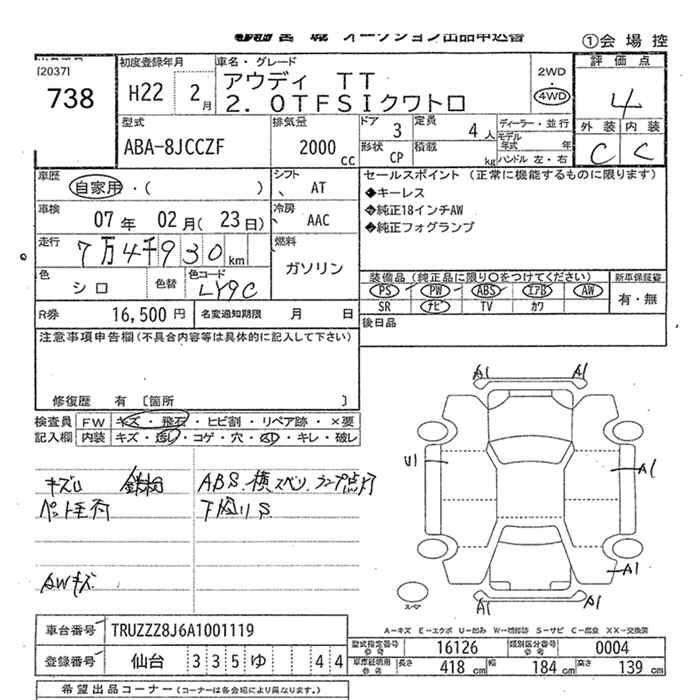 オークション出品申込書
①会場控
[2037]
738
初度登録年月
H22 2月
車名・グレード
アウディ TT
2.0TFSIクワトロ
2WD
4WD
評価点
4
外装 内装
C C
型式
ABA-8JCCZF
排気量
2000 cc
ドア 3
形状 CP
定員 4人
積載 kg
ディーラー・並行
モデル年式 年
ハンドル 左・右
車歴
自家用・( )
シフト
AT
車検
07年 02月(23日)
冷房
AAC
走行
7万4千930km
燃料
ガソリン
色
シロ
色替
色コード
LY9C
R券 16,500円
名変通知期限 月 日
セールスポイント(正常に機能するものに限ります)
◆キーレス
◆純正18インチAW
◆純正フォグランプ
装備品(純正品に限り○をつけてください)
新車保証書
PS PW ABS エアB AW
有・無
SR ナビ TV カワ
後日品
注意事項申告欄(不具合内容等は具体的に記入して下さい)
修復歴 有 〔箇所 〕
検査員 FW キズ・飛石・ヒビ割・リペア跡・×要
記入欄 内装 キズ・汚レ・コゲ・穴・凹・キレ・破レ
キズU
ABS、横スベリ、ランプ点灯
下回りS
AWキズ
A1
A1
U1
A1
A1
A1
A1
スペア
A-キズ E-エクボ U-凹み W-補修跡 S-サビ C-腐食 XX-交換済
車台番号 TRUZZZ8J6A1001119
登録番号 仙台 335 ゆ 44
型式指定番号 16126
類別区分番号 0004
長さ 418 cm 幅 184 cm 高さ 139 cm
希望出品コーナー(コーナーは各会場により異なります。)